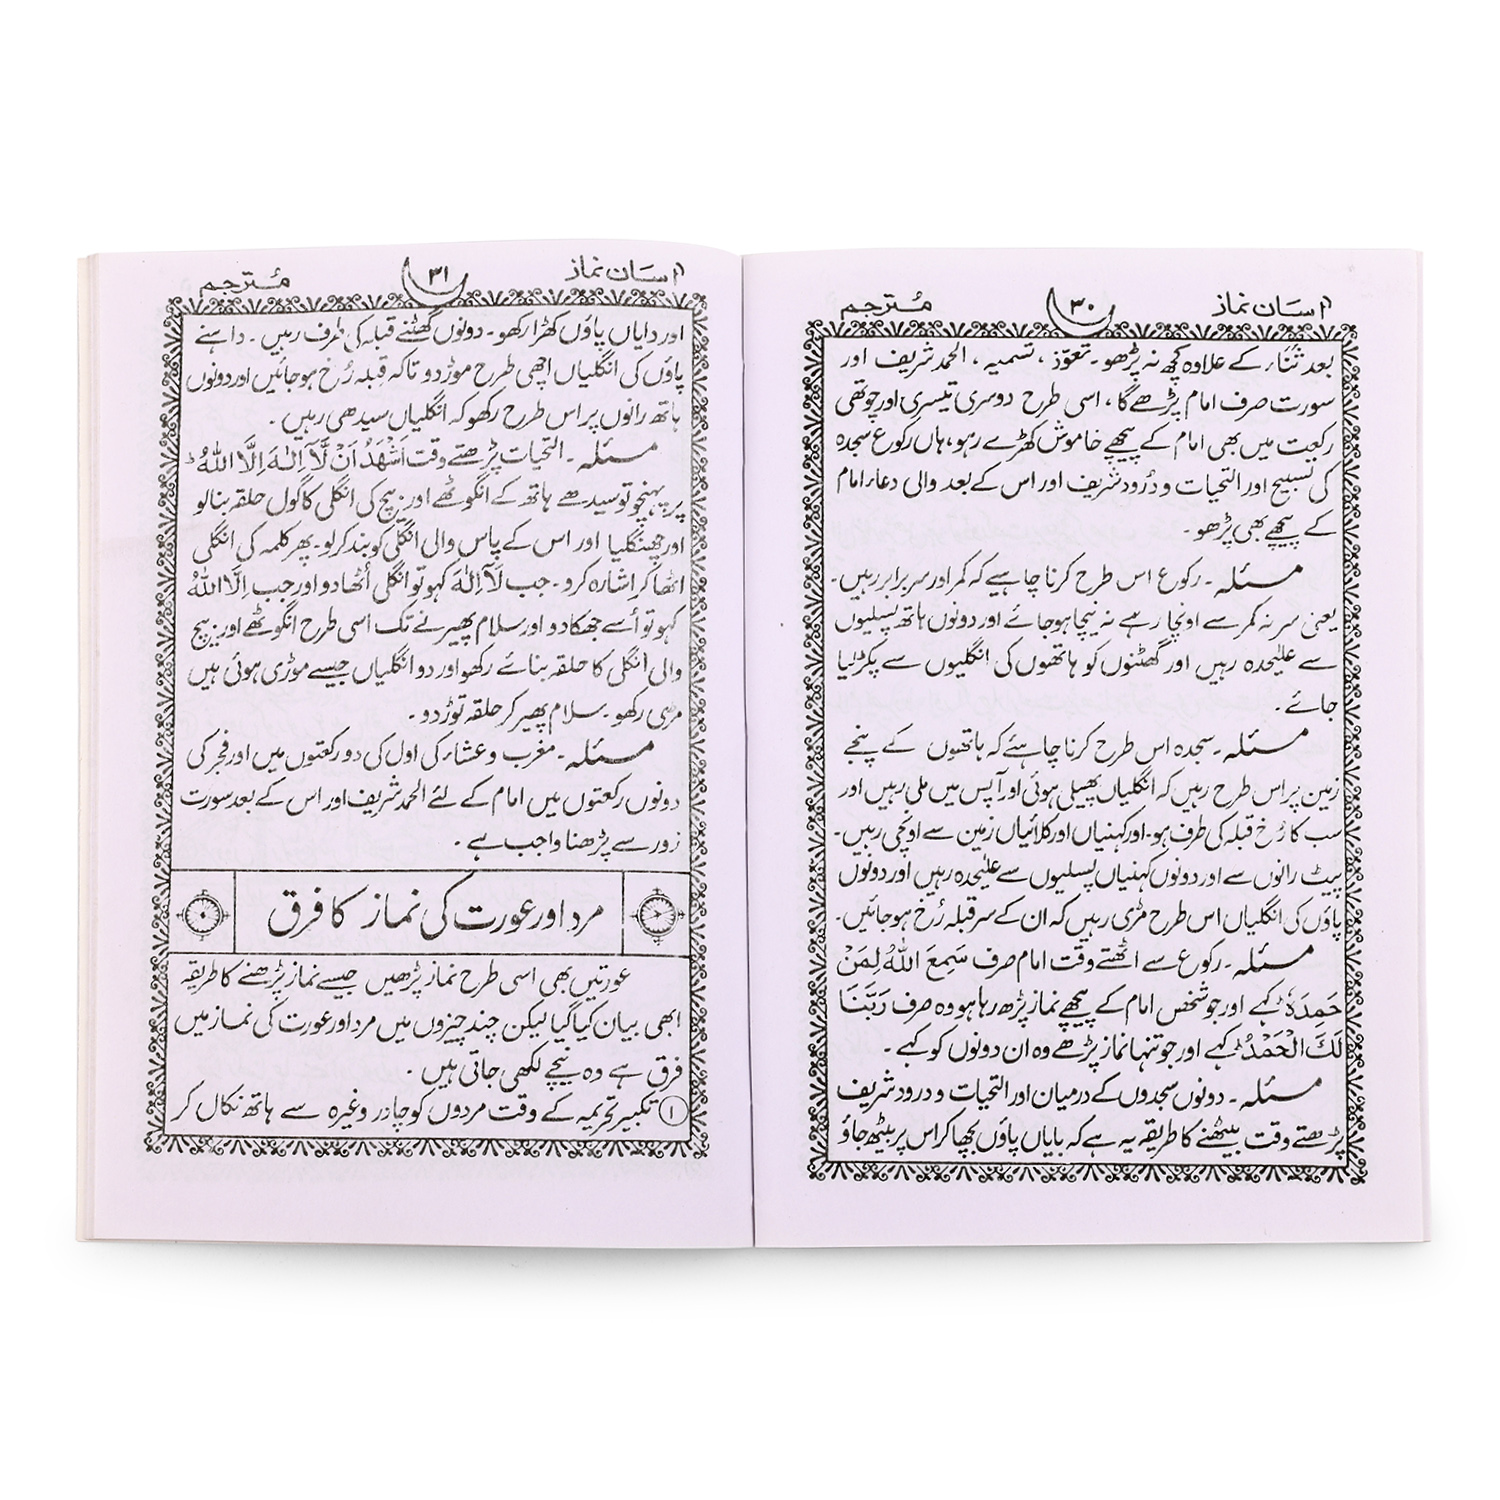 اسان نماز ۳۰ مُترجم
بعد ثَنَاء کے علاوہ کچھ نہ پڑھو۔ تعوّذ ، تسمیہ ، الحمد شریف اور
سورت صرف امام پڑھے گا ، اسی طرح دوسری تیسری اور چوتھی
رکعت میں بھی امام کے پیچھے خاموش کھڑے رہو، ہاں رکوع سجدہ
کی تسبیح اور التحیات و دُرود شریف اور اس کے بعد والی دعاء امام
کے پیچھے بھی پڑھو ۔
مسئلہ ۔ رکوع اس طرح کرنا چاہیے کہ کمر اور سر برابر رہیں ۔
یعنی سر نہ کمر سے اونچا رہے نہ نیچا ہو جائے اور دونوں ہاتھ پسلیوں
سے علیٰحدہ رہیں اور گھٹنوں کو ہاتھوں کی انگلیوں سے پکڑ لیا
جائے ۔
مسئلہ ۔ سجدہ اس طرح کرنا چاہئے کہ ہاتھوں کے پنجے
زمین پر اس طرح رہیں کہ انگلیاں پھیلی ہوئی اور آپس میں ملی رہیں اور
سب کا رُخ قبلہ کی طرف ہو۔ اور کہنیاں اور کلائیاں زمین سے اونچی رہیں۔
پیٹ رانوں سے اور دونوں کہنیاں پسلیوں سے علیٰحدہ رہیں اور دونوں
پاؤں کی انگلیاں اس طرح مڑی رہیں کہ ان کے سر قبلہ رُخ ہو جائیں۔
مسئلہ ۔ رکوع سے اٹھتے وقت امام صرف سَمِعَ اللهُ لِمَنْ
حَمِدَهٗ کہے اور جو شخص امام کے پیچھے نماز پڑھ رہا ہو وہ صرف رَبَّنَا
لَكَ الْحَمْدُ کہے اور جو تنہا نماز پڑھے وہ ان دونوں کو کہے ۔
مسئلہ ۔ دونوں سجدوں کے درمیان اور التحیات و درود شریف
پڑھتے وقت بیٹھنے کا طریقہ یہ ہے کہ بایاں پاؤں بچھا کر اس پر بیٹھ جاؤ
اسان نماز ۳۱ مُترجم
اور دایاں پاؤں کھڑا رکھو۔ دونوں گھٹنے قبلہ کی طرف رہیں ۔ داہنے
پاؤں کی انگلیاں اچھی طرح موڑ دو تاکہ قبلہ رُخ ہو جائیں اور دونوں
ہاتھ رانوں پر اس طرح رکھو کہ انگلیاں سیدھی رہیں ۔
مسئلہ ۔ التحیات پڑھتے وقت اَشْهَدُ اَنْ لَّآ اِلٰهَ اِلَّا اللهُ
پر پہنچو تو سیدھے ہاتھ کے انگوٹھے اور بیچ کی انگلی کا گول حلقہ بنا لو
اور چھنگلیا اور اس کے پاس والی انگلی کو بند کر لو۔ پھر کلمہ کی انگلی
اٹھا کر اشارہ کرو ۔ جب لَآ اِلٰهَ کہو تو انگلی اُٹھا دو اور جب اِلَّا اللهُ
کہو تو اُسے جھکا دو اور سلام پھیرنے تک اسی طرح انگوٹھے اور بیچ
والی انگلی کا حلقہ بنائے رکھو اور دو انگلیاں جیسے موڑی ہوئی ہیں
مڑی رکھو ۔ سلام پھیر کر حلقہ توڑ دو ۔
مسئلہ ۔ مغرب و عشاء کی اول کی دو رکعتوں میں اور فجر کی
دونوں رکعتوں میں امام کے لئے الحمد شریف اور اس کے بعد سورت
زور سے پڑھنا واجب ہے ۔
مرد اور عورت کی نماز کا فرق
عورتیں بھی اسی طرح نماز پڑھیں جیسے نماز پڑھنے کا طریقہ
ابھی بیان کیا گیا لیکن چند چیزوں میں مرد اور عورت کی نماز میں
فرق ہے وہ نیچے لکھی جاتی ہیں ۔
۱ تکبیر تحریمہ کے وقت مردوں کو چادر وغیرہ سے ہاتھ نکال کر